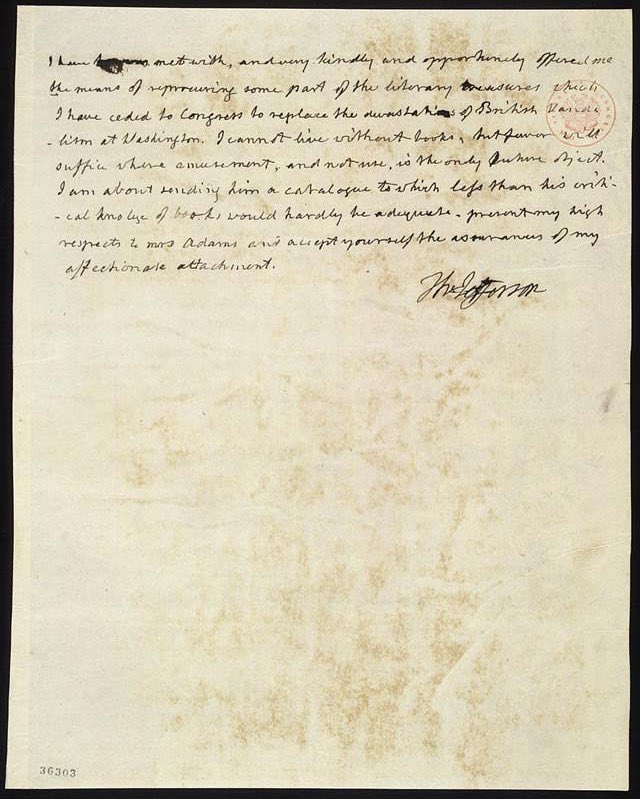 I have met with, and very kindly and opportunely offered me
the means of reprocuring some part of the literary treasures which
I have ceded to Congress to replace the devastations of British Vanda-
-lism at Washington. I cannot live without books; but fewer will
suffice where amusement, and not use, is the only future object.
I am about sending him a catalogue to which less than his criti-
-cal knolege of books would hardly be adequate. present my high
respects to mrs Adams and accept yourself the assurances of my
affectionate attachment.
Th: Jefferson
36303